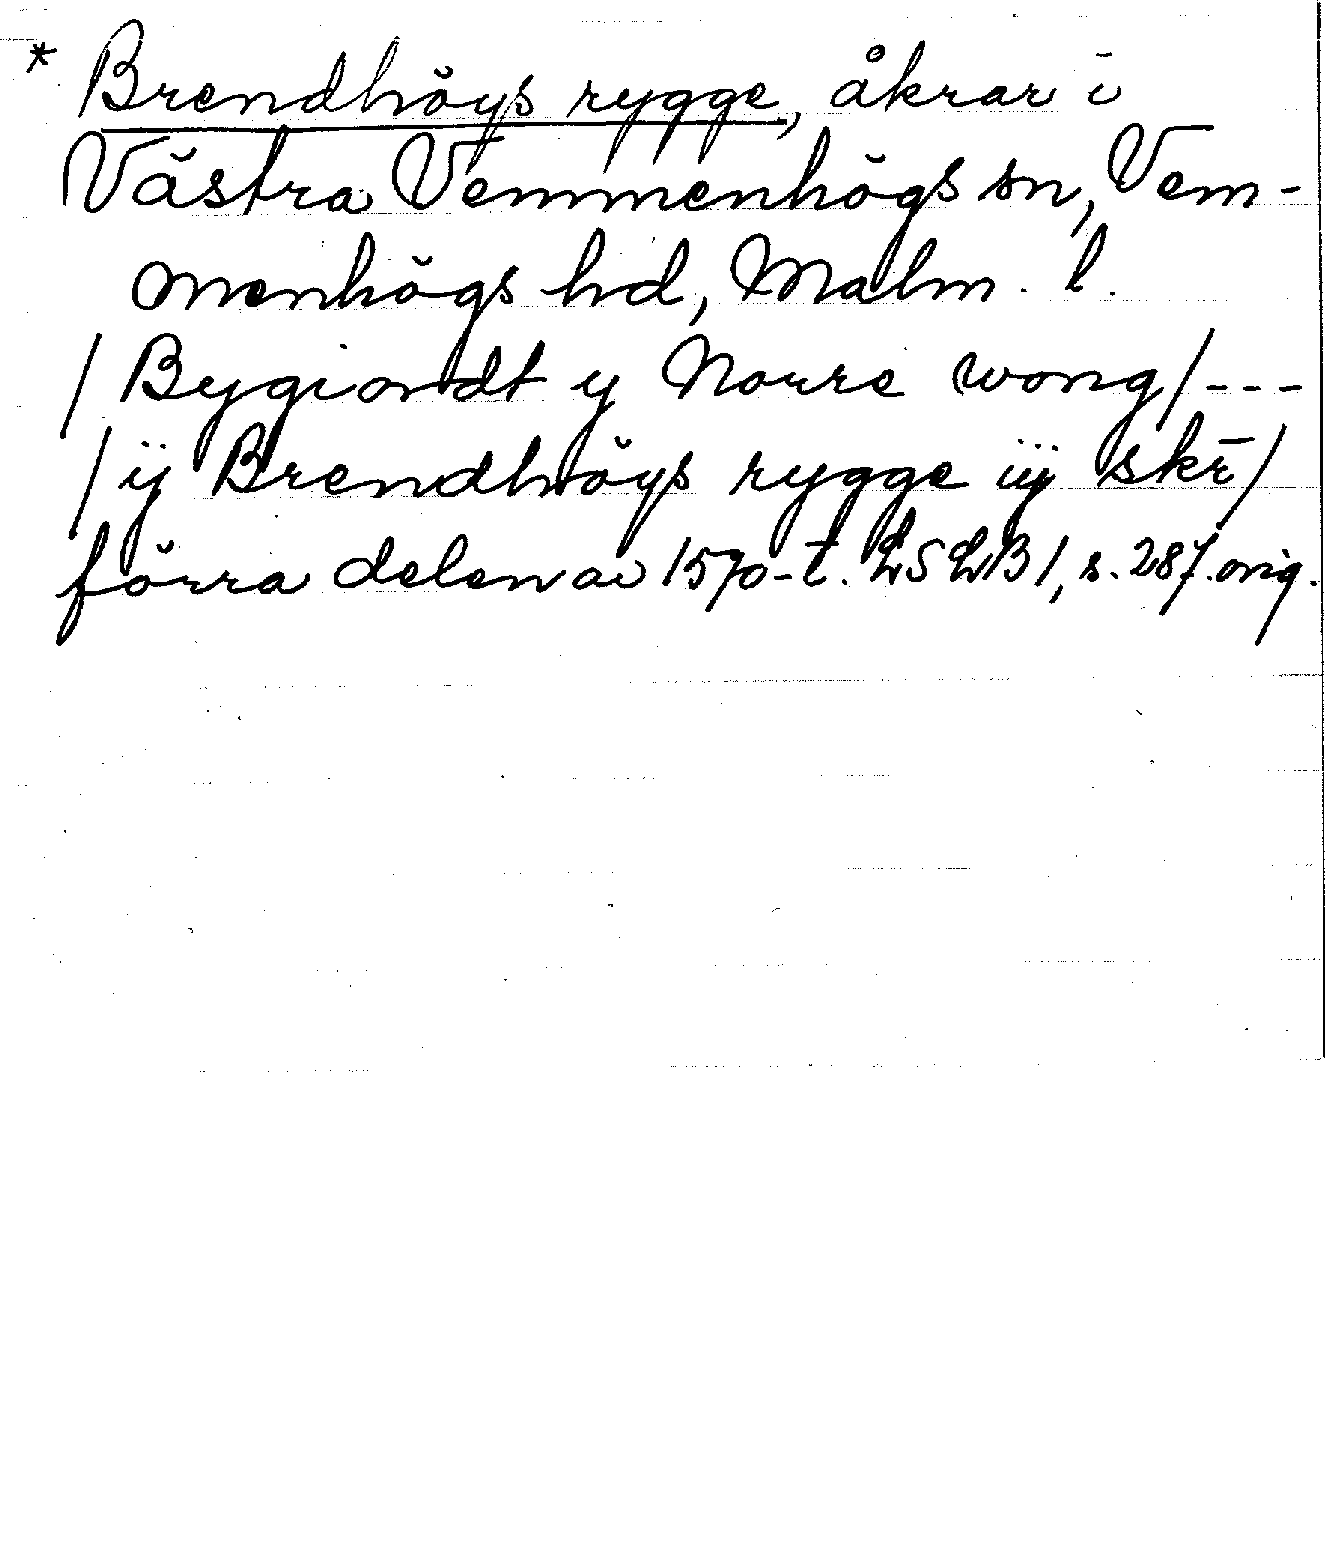 * Brendhöys rygge, åkrar i
Västra Vemmenhögs sn, Vem-
menhögs hd, Malm. l.
/ Bygiordt y Norre wong / ---
/ ij Brendhöys rygge iij skr̄ /
förra delen av 1570-t. LSLB 1, s. 287. orig.